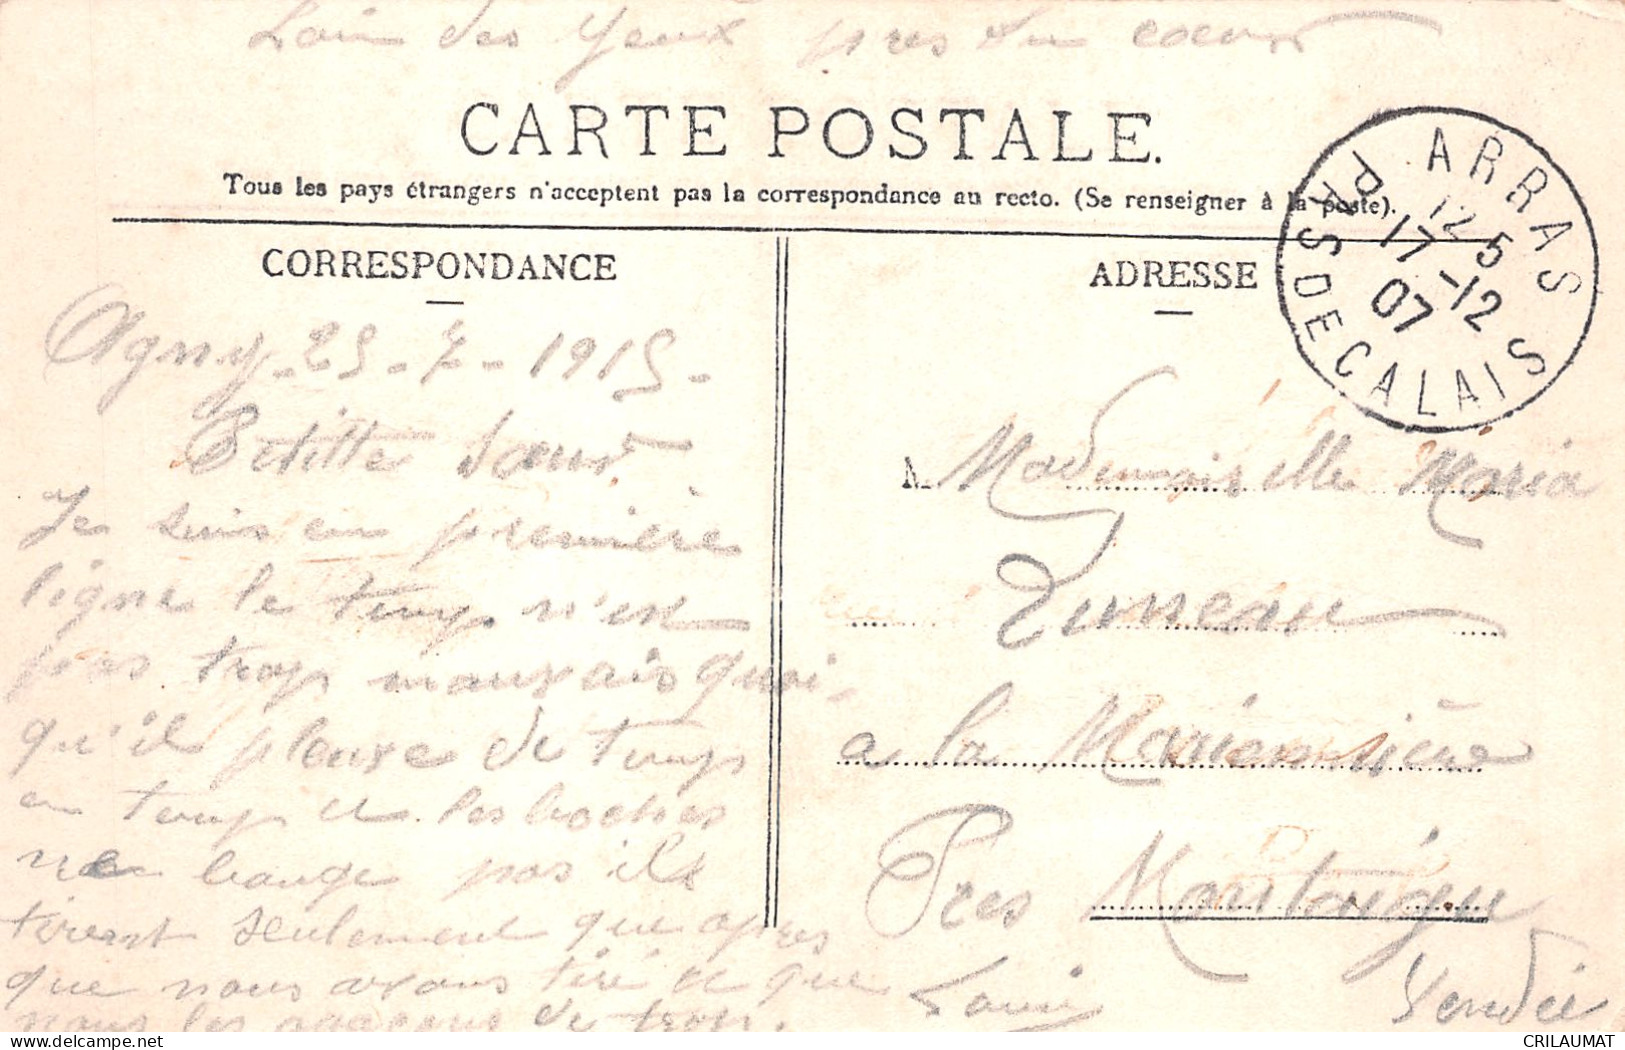 Loin des yeux pres du coeur
CARTE POSTALE.
Tous les pays étrangers n'acceptent pas la correspondance au recto. (Se renseigner à la poste).
ARRAS
12 5
17 -12
07
PAS DE CALAIS
CORRESPONDANCE
Agny - 25 - 7 - 1915 -
Petitte soeur
Je suis en première
ligne le temp n'est
pas trop mauvais quoi-
qu'il pleuse de temps
en temp et les boches
ne bouge pas ils
tirent seulement que apres
que nous avons tiré et que
nous les agacons de trop.
ADRESSE
M
Mademoiselle Maria
Duneau
a la Marionnière
Pres Montaigu
Vendée
Louis
CRILAUMAT